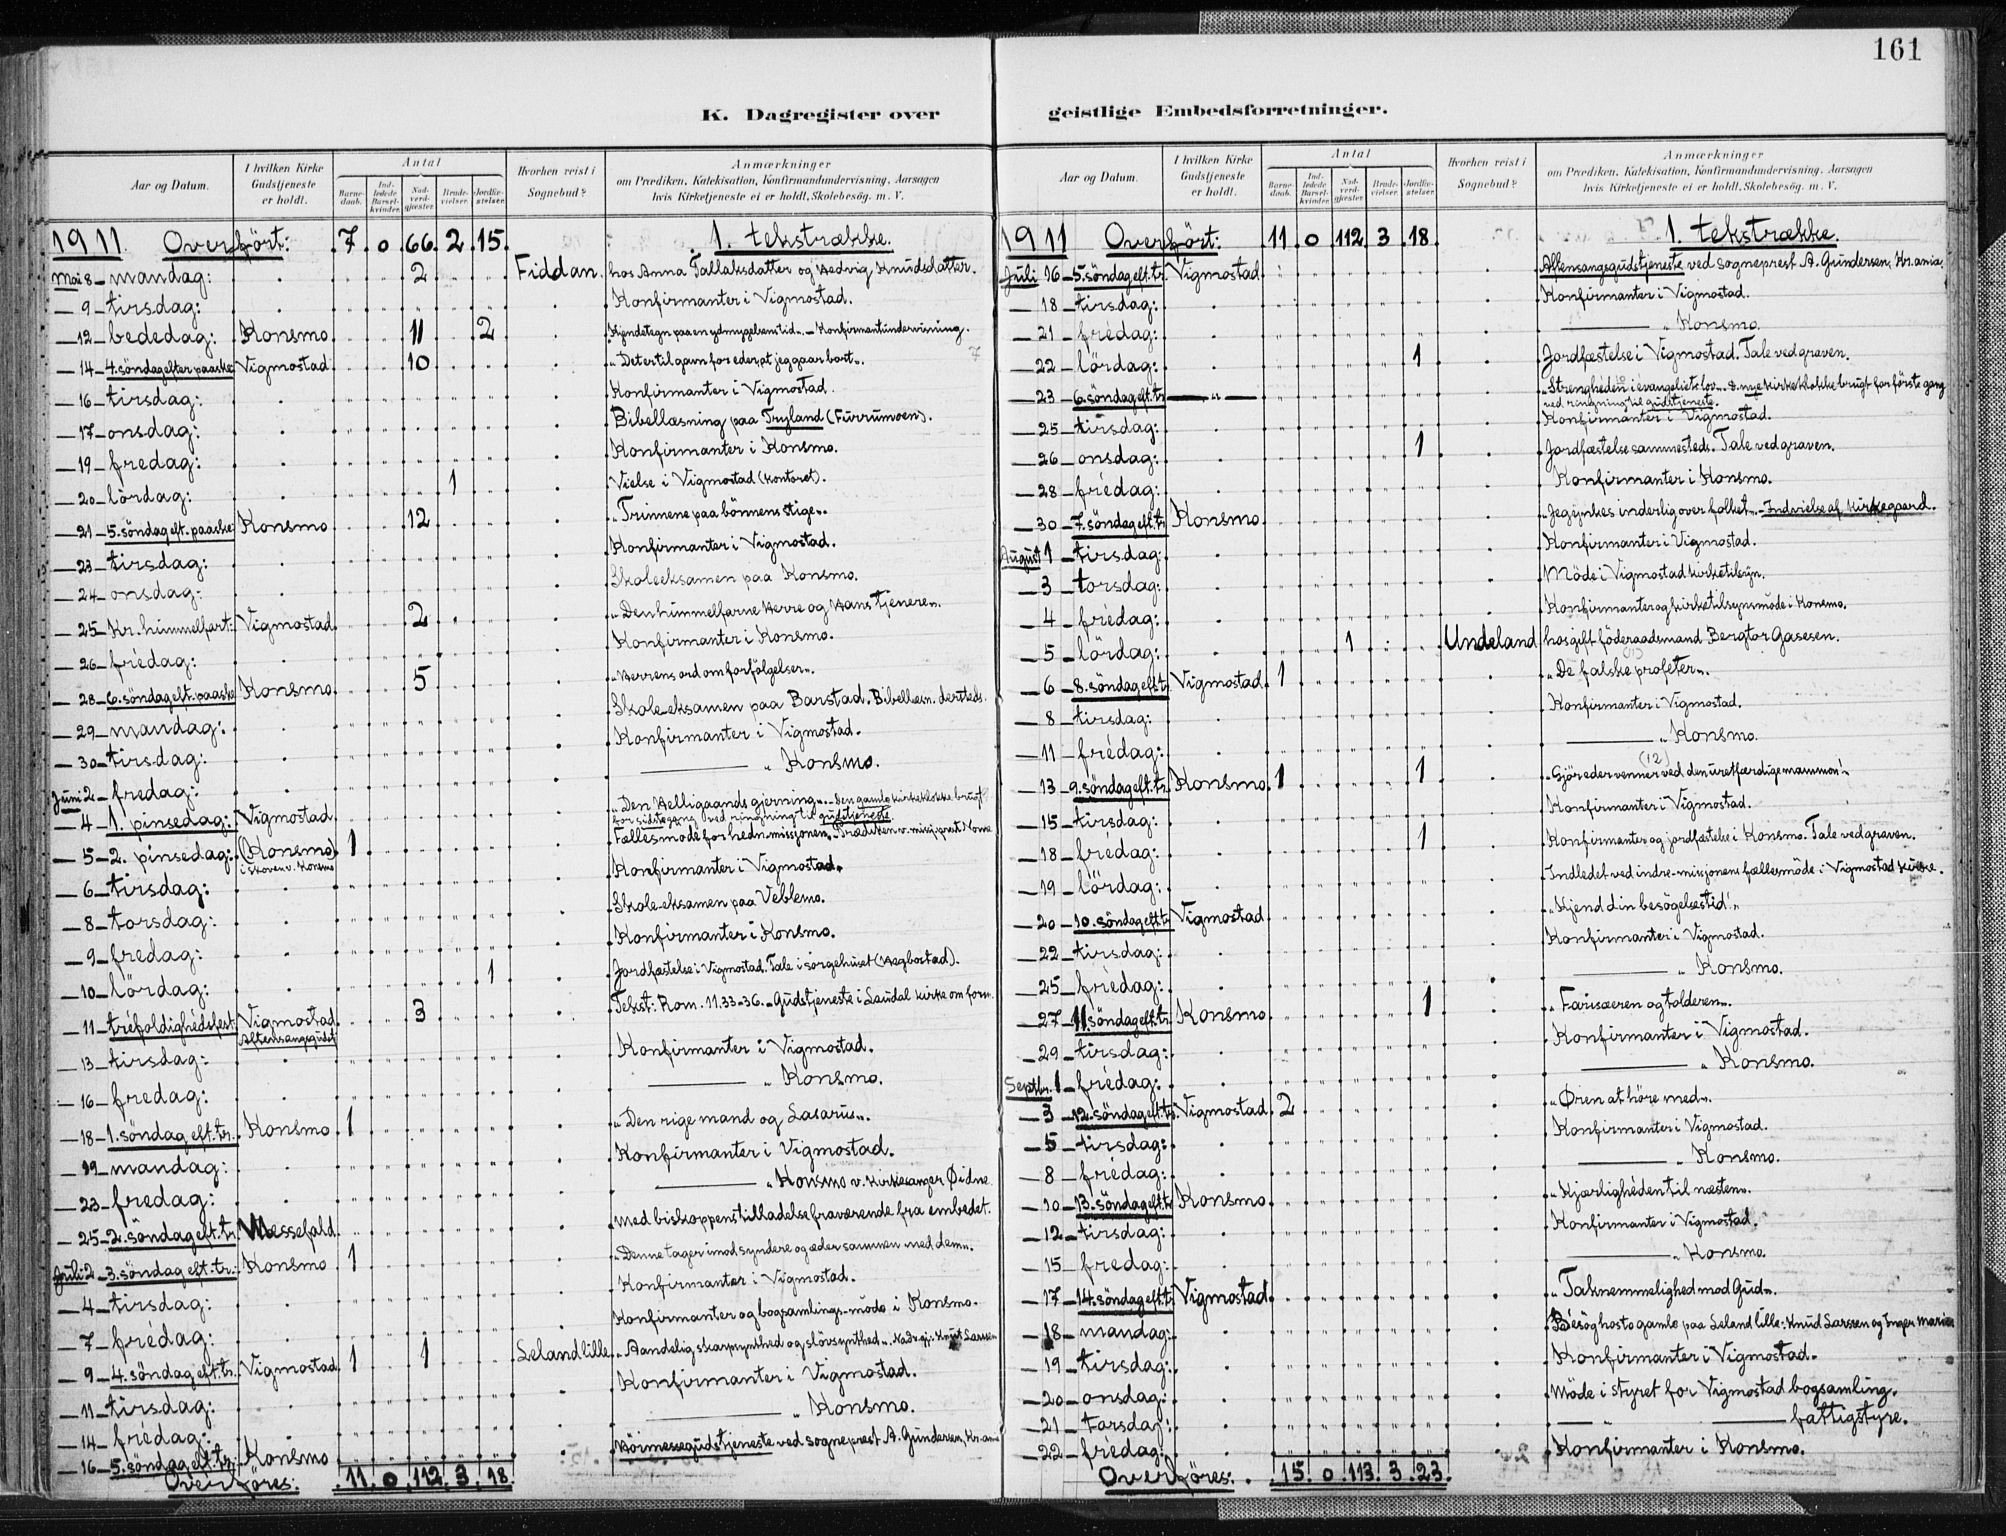 161
K. Dagregister over geistlige Embedsforretninger.
Aar og Datum.
I hvilken Kirke Gudstjeneste er holdt.
Antal
Barne-daab.
Ind-ledede Barsel-kvinder.
Nad-verd-gjæster.
Brude-vielser.
Jordfæ-stelser.
Hvorhen reist i Sognebud?
Anmærkninger
om Prædiken, Katekisation, Konfirmandundervisning, Aarsagen
hvis Kirketjeneste ei er holdt, Skolebesøg. m. V.
1911. Overført: 7 0 66 2 15. 1. tekstrække.
Mai 8 – mandag: 2 Fiddan. hos Anna Tallaksdatter og Hedvig Knudsdatter.
9 – tirsdag: Konfirmanter i Vigmostad.
12 – bededag: Konsmo 11 2 Kjendetegn paa en ydmygelsens tid". – Konfirmantundervisning.
14 – 4. söndag efter paaske: Vigmostad 10 "Det er til gavn for eder, at jeg gaar bort".
16 – tirsdag: Konfirmanter i Vigmostad.
17 – onsdag: Bibellæsning paa Tryland (Furrumoen).
19 – fredag: Konfirmanter i Konsmo.
20 – lördag: 1 Vielse i Vigmostad (kontoret).
21 – 5. söndag eft. paaske: Konsmo 12 "Trinnene paa bönnens stige".
23 – tirsdag: Konfirmanter i Vigmostad.
24 – onsdag: Skoleeksamen paa Konsmo.
25 – Kr. himmelfart: Vigmostad 2 "Den himmelfarne Herre og Hans tjenere".
26 – frédag: Konfirmanter i Konsmo.
28 – 6. söndag eft. paaske Konsmo 5 "Herrens ord om forfölgelser".
29 – mandag: Skole-eksamen paa Barstad. Bibellæsn. dersteds.
30 – tirsdag: Konfirmanter i Vigmostad.
Juni 2 – fredag: " Konsmo.
4 – 1. pinsedag: Vigmostad "Den Helligaands gjerning". – Den gamle kirkeklokke brugt
for sidste gang ved ringning til gudstjeneste.
5 – 2. pinsedag: (Konsmo) 1 Fællesmöde for hedn.-missjonen. Prædiken v. missj.prest Home
i skoven v. Konsmo
6 – tirsdag: Konfirmanter i Vigmostad.
8 – torsdag: Skole-eksamen paa Veblemo.
9 – fredag: Konfirmanter i Konsmo.
10 – lördag: 1 Jordfæstelse i Vigmostad. Tale i sørgehuset (Hægbostad).
11 – tréfoldighédsfest: Vigmostad 3 Tekst: Rom. 11. 33-36. – Gudstjeneste i Laudal kirke om form.
Aftensangsgudst.
13 – tirsdag: Konfirmanter i Vigmostad.
16 – fredag: " Konsmo.
18 – 1. söndag eft. tr. Konsmo 1 "Den rige mand og Lasarus".
19 – mandag: Konfirmanter i Vigmostad.
23 – fredag: " Konsmo v. kirkesanger Øidne.
25 – 2. söndag eft. tr. Messefald. Med biskoppens tilladelse fraværende fra embedet.
Juli 2 – 3. söndag eft. tr.: Konsmo 1 "Denne tager imod syndere og æder sammen med dem".
4 – tirsdag: Konfirmanter i Vigmostad.
7 – frédag: Konfirmanter og bogsamlings-möde i Konsmo.
9 – 4. söndag eft. tr. Vigmostad 1 1 Leland lille "Aandelig skarpsynthed og slövsynthed". Nadv.gj. Knut Larssen
11 – tirsdag: Konfirmanter i Vigmostad.
14 – frédag: " Konsmo.
16 – 5. söndag eft. tr. Konsmo Höimessegudstjeneste ved sogneprest A. Gundersen, Kr.ania
Overföres: 11. 0. 112. 3. 18.
Aar og Datum.
I hvilken Kirke Gudstjeneste er holdt.
Antal
Barne-daab.
Ind-ledede Barsel-kvinder.
Nad-verd-gjæster.
Brude-vielser.
Jordfæ-stelser.
Hvorhen reist i Sognebud?
Anmærkninger
om Prædiken, Katekisation, Konfirmandundervisning, Aarsagen
hvis Kirketjeneste ei er holdt, Skolebesøg. m. V.
1911 Overført: 11 0 112 3 18 1. tekstrække.
Juli 16 – 5. söndag eft. tr. Vigmostad Aftensangsgudstjeneste ved sogneprest A. Gundersen, Kr.ania.
18 – tirsdag: Konfirmanter i Vigmostad.
21 – frédag: " Konsmo.
22 – lördag: 1 Jordfæstelse i Vigmostad. Tale ved graven.
23 – 6. söndag eft. tr. " "Strengheden i evangeliets lov". – Nye kirkeklokke brugt for förste gang
ved ringning til gudstjeneste.
25 – tirsdag: Konfirmanter i Vigmostad.
26 – onsdag: 1 Jordfæstelse sammesteds. Tale ved graven.
28 – frédag: Konfirmanter i Konsmo.
30 – 7. söndag eft. tr. Konsmo "Jeg ynkes inderlig over folket". – Indvielse af kirkegaard.
August 1 – tirsdag: Konfirmanter i Vigmostad.
3 – torsdag: Möde i Vigmostad kirketilsyn.
4 – frédag: Konfirmanter og kirketilsynsmöde i Konsmo.
5 – lördag: 1 Undeland hos gift föderaadsmand Bergtor Gasesen.
6 – 8. söndag eft. tr. Vigmostad 1 "De falske profeter".
8 – tirsdag: Konfirmanter i Vigmostad.
11 – frédag: " Konsmo.
(12)
13 – 9. söndag eft. tr. Konsmo 1 1 "Gjör eder venner ved den uretfærdige mammon!"
15 – tirsdag: Konfirmanter i Vigmostad.
18 – fredag: 1 Konfirmanter og jordfæstelse i Konsmo. Tale ved graven.
19 – lördag: Indledet ved indre-missjonens fællesmöde i Vigmostad kirke.
20 – 10. söndag eft. tr. Vigmostad "Kjend din besögelsestid!"
22 – tirsdag: Konfirmanter i Vigmostad.
25 – frédag: " Konsmo.
27 – 11. söndag eft. tr. Konsmo 1 "Farisæeren og tolderen".
29 – tirsdag: Konfirmanter i Vigmostad.
Septbr. 1 – frédag: " Konsmo.
3 – 12. söndag eft. tr. Vigmostad 2 "Øren at höre med".
5 – tirsdag: Konfirmanter i Vigmostad.
8 – frédag: " Konsmo.
10 – 13. söndag eft. tr. Konsmo "Kjærlighéden til næsten".
12 – tirsdag: Konfirmanter i Vigmostad.
15 – fredag: " Konsmo.
17 – 14. söndag eft. tr. Vigmostad "Taknemmelighed mod Gud".
18 – mandag: Besög hos to gamle paa Leland lille: Knud Larssen og Inger Marien
19 – tirsdag: Konfirmanter i Vigmostad.
20 – onsdag: Möde i styret for Vigmostad bogsamling.
21 – Torsdag: " fattigstyre.
22 – fredag: Konfirmanter i Konsmo.
Overföres: 15. 0. 113. 3. 23.